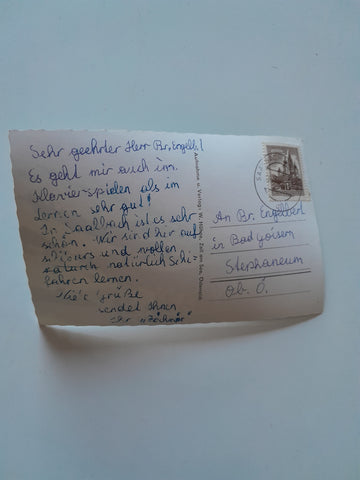 Sehr geehrter Herr Br. Engelb.!
Es geht mir auch im
Klavierspielen als im
lernen sehr gut!
In Saalbach ist es sehr
schön. Wir sind hier auf
und wollen
natürlich Schi
fahren lernen.
Grüße
sendet Ihnen
Ihr
Aufnahme u. Verlag W. Zell am See,
An Br. Engelbert
in Bad Goisern
Stephaneum
Ob. Ö.